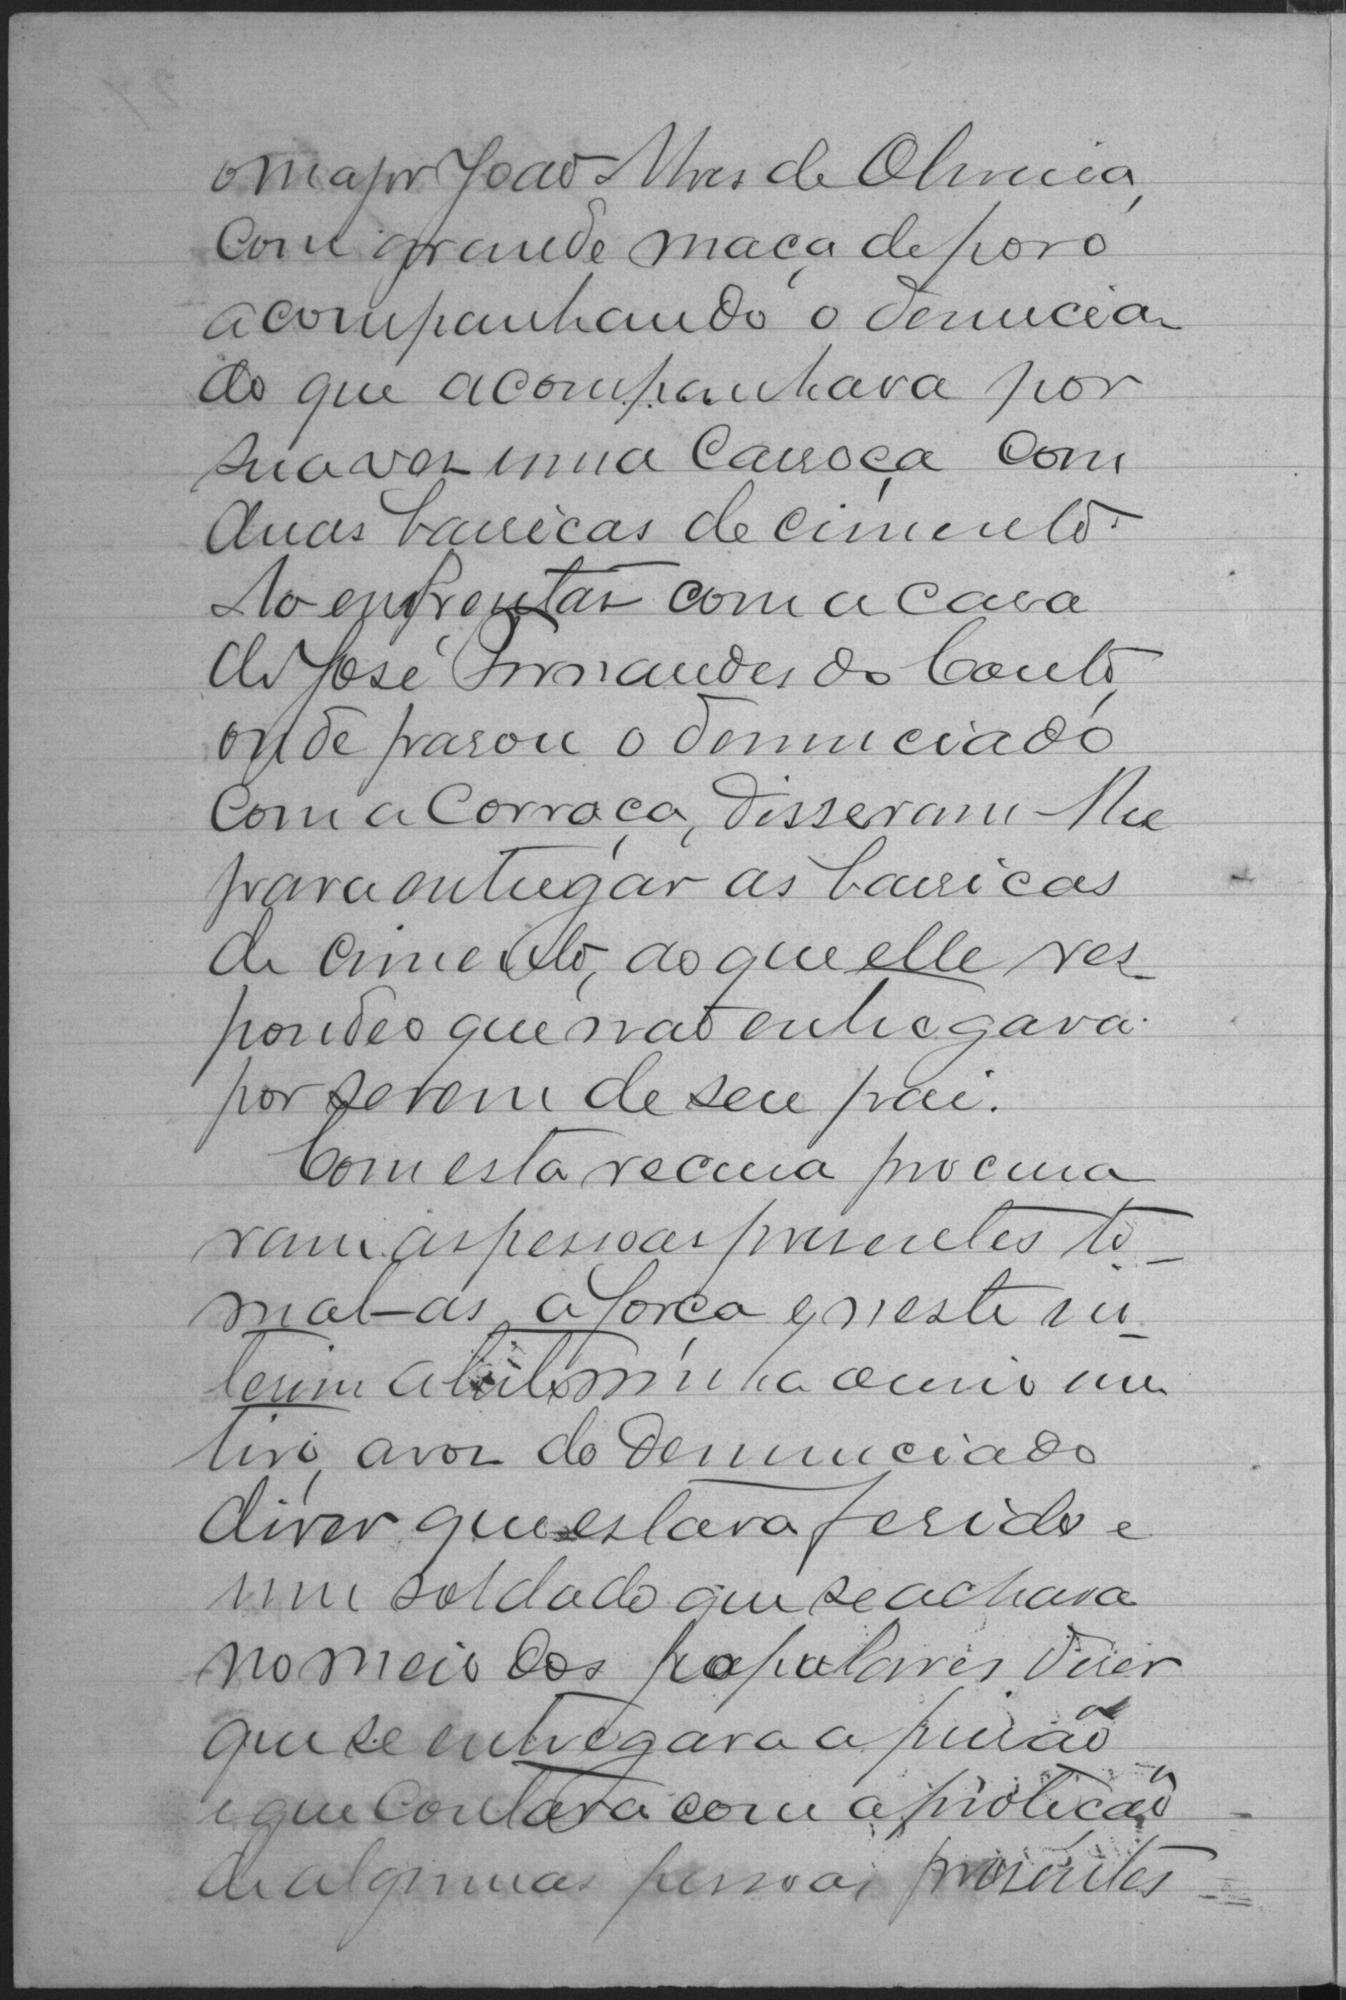 o major João Alves de Oliveira,
com grande maça de povo
acompanhando o denuncia
do que acompanhava por
sua vez uma carroça com
duas barricas de cimento.
Ao enfrentar com a casa
de José Fernandes do Couto,
onde parou o denunciado
com a corroça, disseram-lhe
para entregar as barricas
de cimento, ao que elle res
pondeo que não entregava
por serem de seu pai.
Com esta recusa procura
ram as pessoas presentes to
mal-as a força e neste in
terim a testeminha ouvio um
tiro, a voz do denunciado
dizer que estava ferido e
um soldado que se achava
no meio dos populares dizer
que se entregava a prisão
e que contava com a proteção
de algumas pessoas presentes